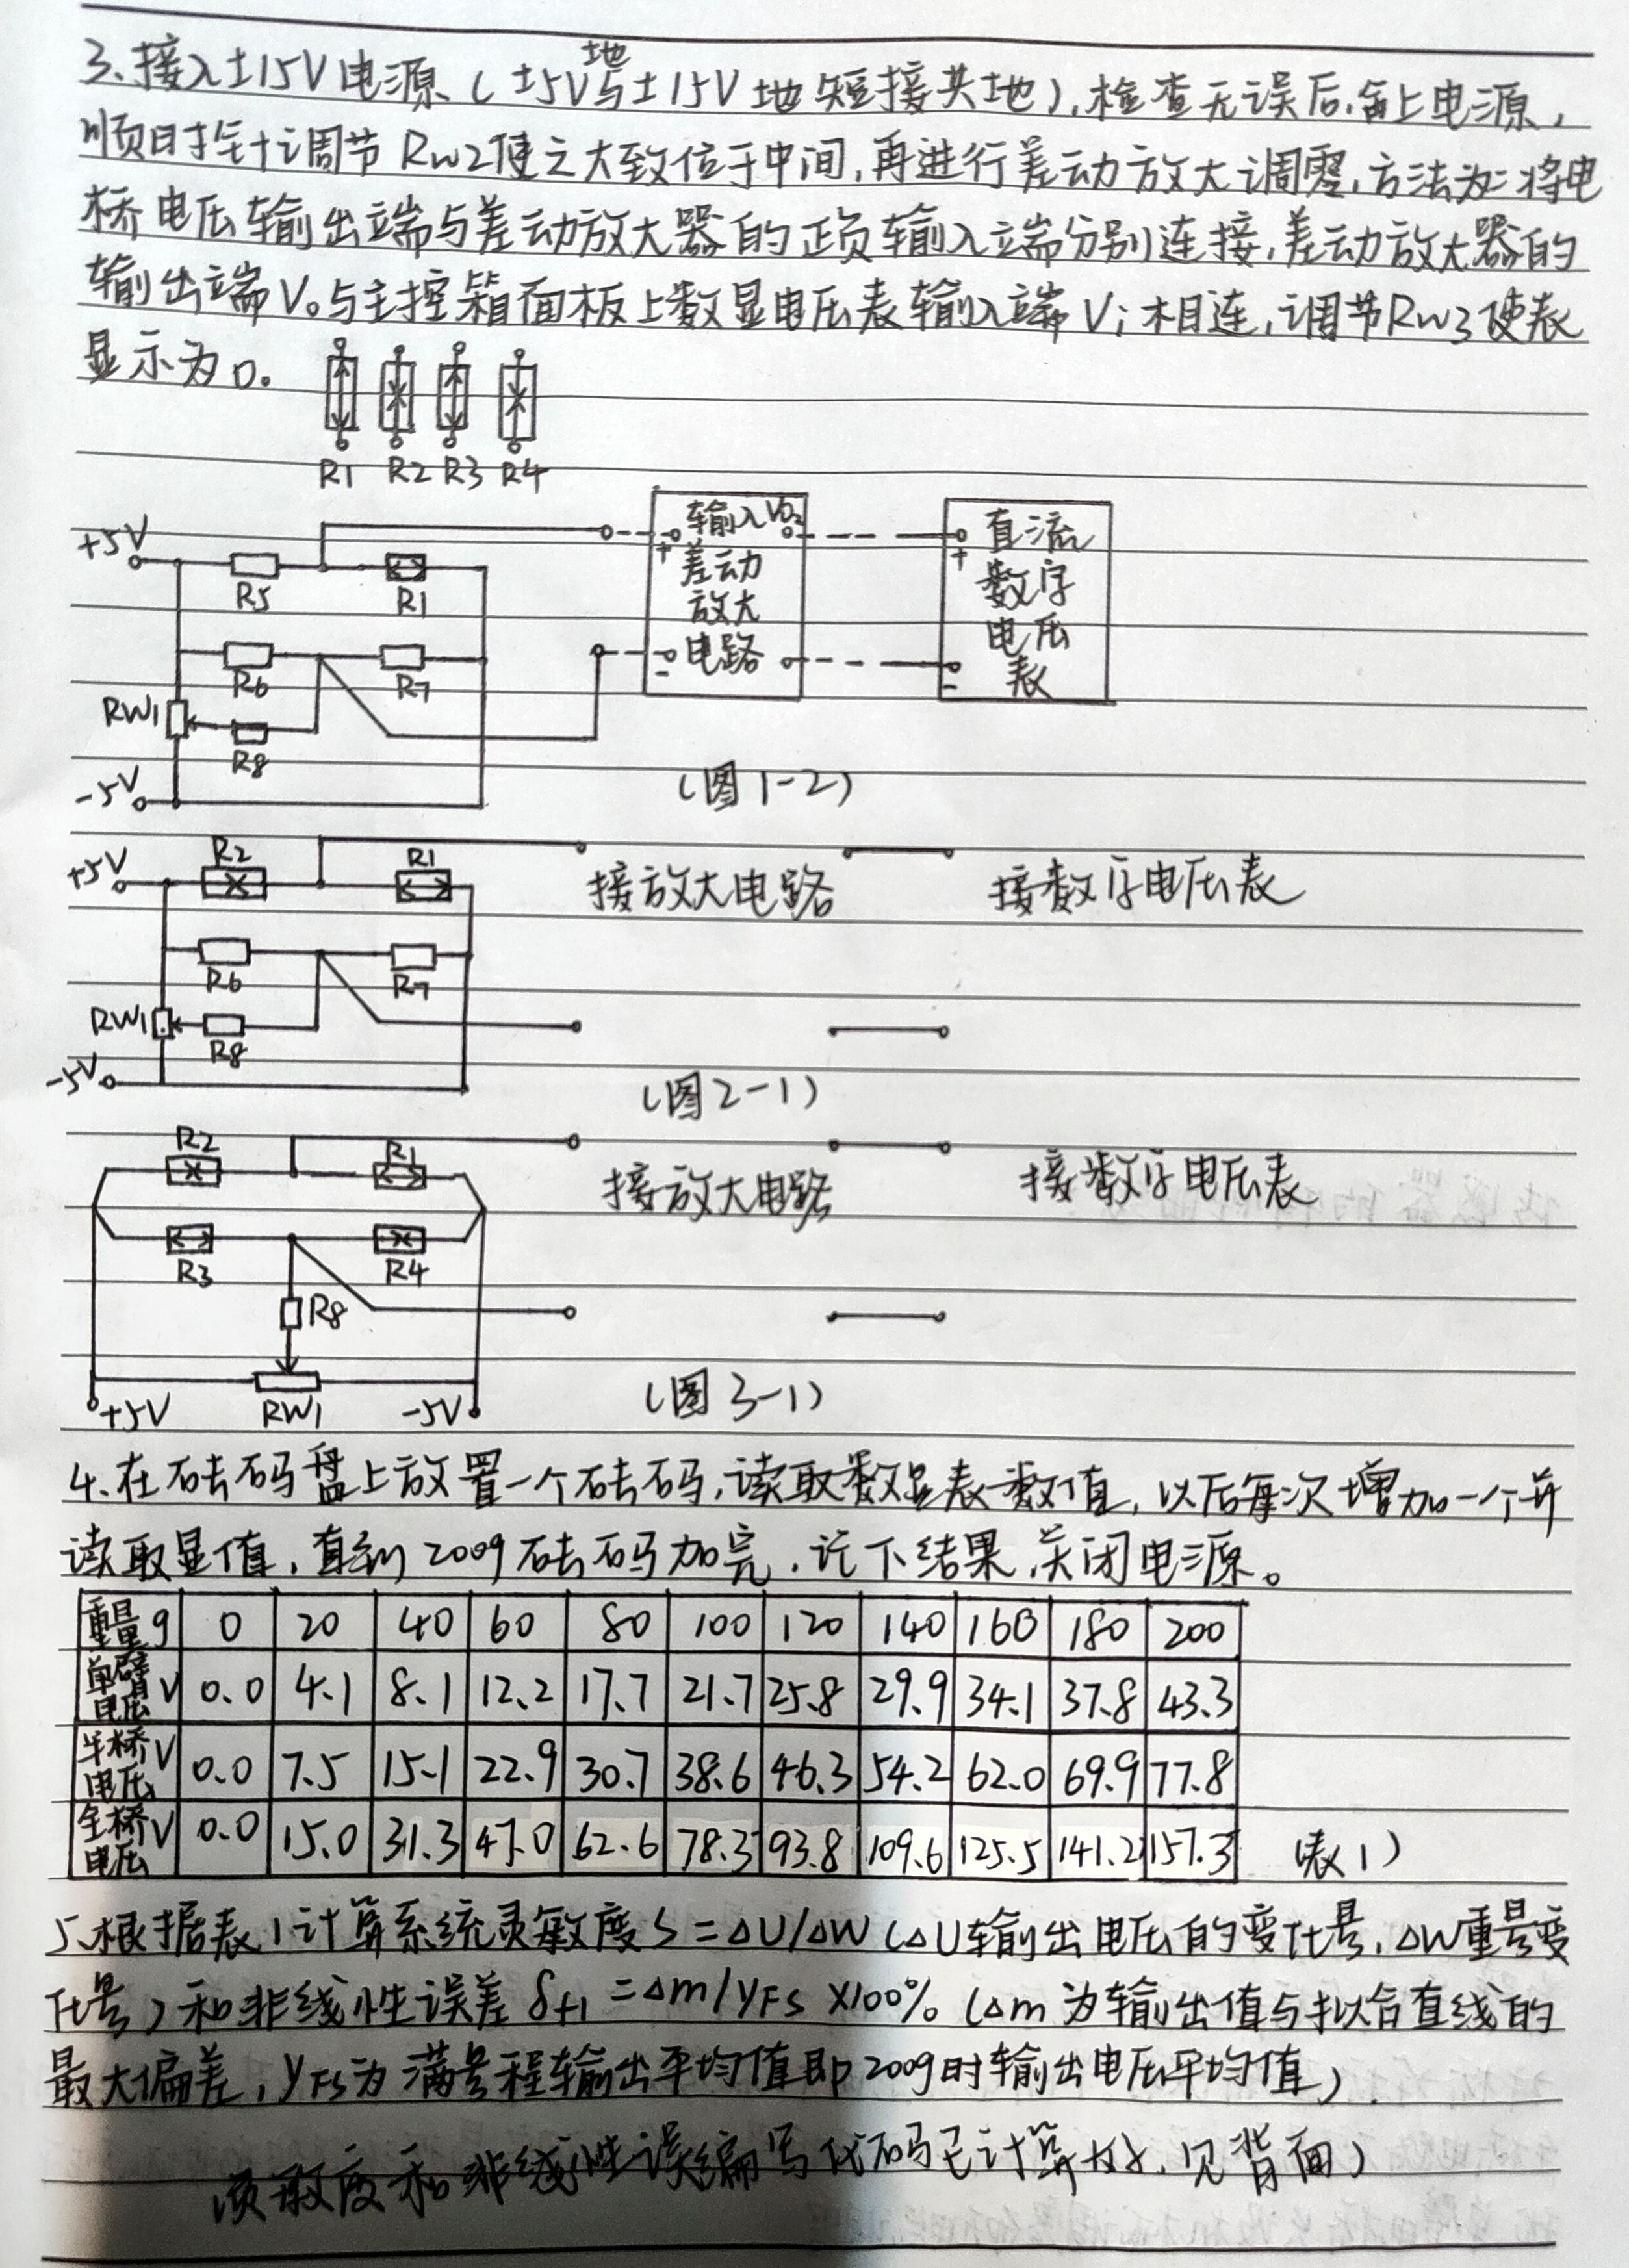 3、接入±15V电源(±5V地与±15V地短接共地),检查无误后,合上电源,
顺时针调节Rw2使之大致位于中间,再进行差动放大调零,方法为:将电
桥电压输出端与差动放大器的正负输入端分别连接,差动放大器的
输出端V。与主控箱面板上数显电压表输入端Vi相连,调节Rw3使表
显示为0。
R1 R2 R3 R4
+5V R5 R1 输入 Vo2 直流
+ 差动 + 数字
放大 电压
R6 R7 - 电路 - 表
RW1 R8
-5V (图1-2)
+5V R2 R1 接放大电路 接数字电压表
R6 R7
RW1 R8
-5V (图2-1)
R2 R1 接放大电路 接数字电压表
R3 R4
R8
+5V RW1 -5V (图3-1)
4、在砝码盘上放置一个砝码,读取数显表数值,以后每次增加一个并
读取显值,直到200g砝码加完,记下结果,关闭电源。
重量g 0 20 40 60 80 100 120 140 160 180 200
单臂电压V 0.0 4.1 8.1 12.2 17.7 21.7 25.8 29.9 34.1 37.8 43.3
半桥电压V 0.0 7.5 15.1 22.9 30.7 38.6 46.3 54.2 62.0 69.9 77.8
全桥电压V 0.0 15.0 31.3 47.0 62.6 78.3 93.8 109.6 125.5 141.2 157.3 (表1)
5、根据表1计算系统灵敏度S=ΔU/ΔW(ΔU输出电压的变化量,ΔW重量变
化量)和非线性误差δf1=Δm/yFS×100%(Δm为输出值与拟合直线的
最大偏差,yFS为满量程输出平均值即200g时输出电压平均值)
(灵敏度和非线性误编写代码已计算好,见背面)